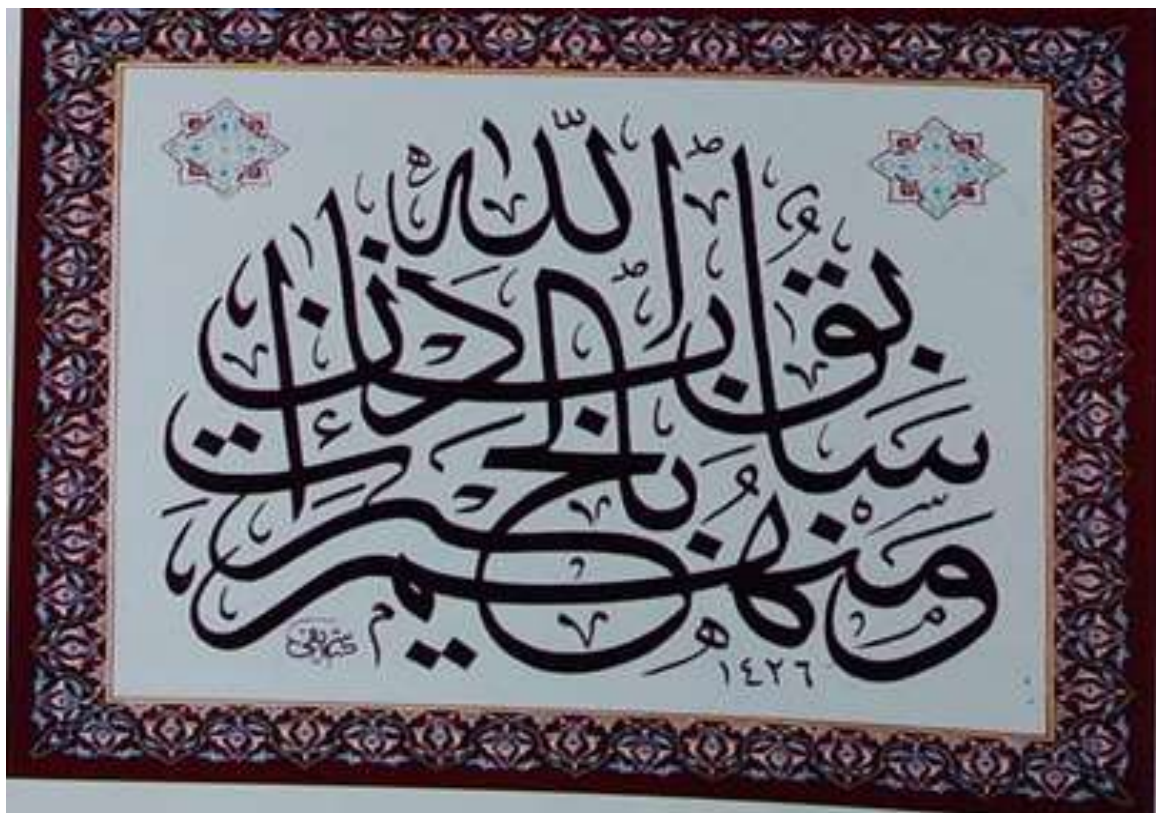 وَمِنْهُمْ سَابِقٌ بِالْخَيْرَاتِ بِإِذْنِ اللَّهِ
١٤٢٦ هـ